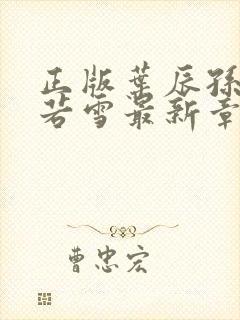 正版叶辰孙
若雪最新章
曹忠宏